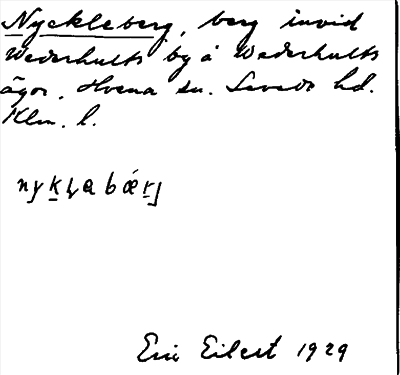 Nyckleberg, berg invid
Wederhults by å Wederhults
ägor. Hvena sn. Sevede hd.
Klm. l.
Eric Eilert 1929